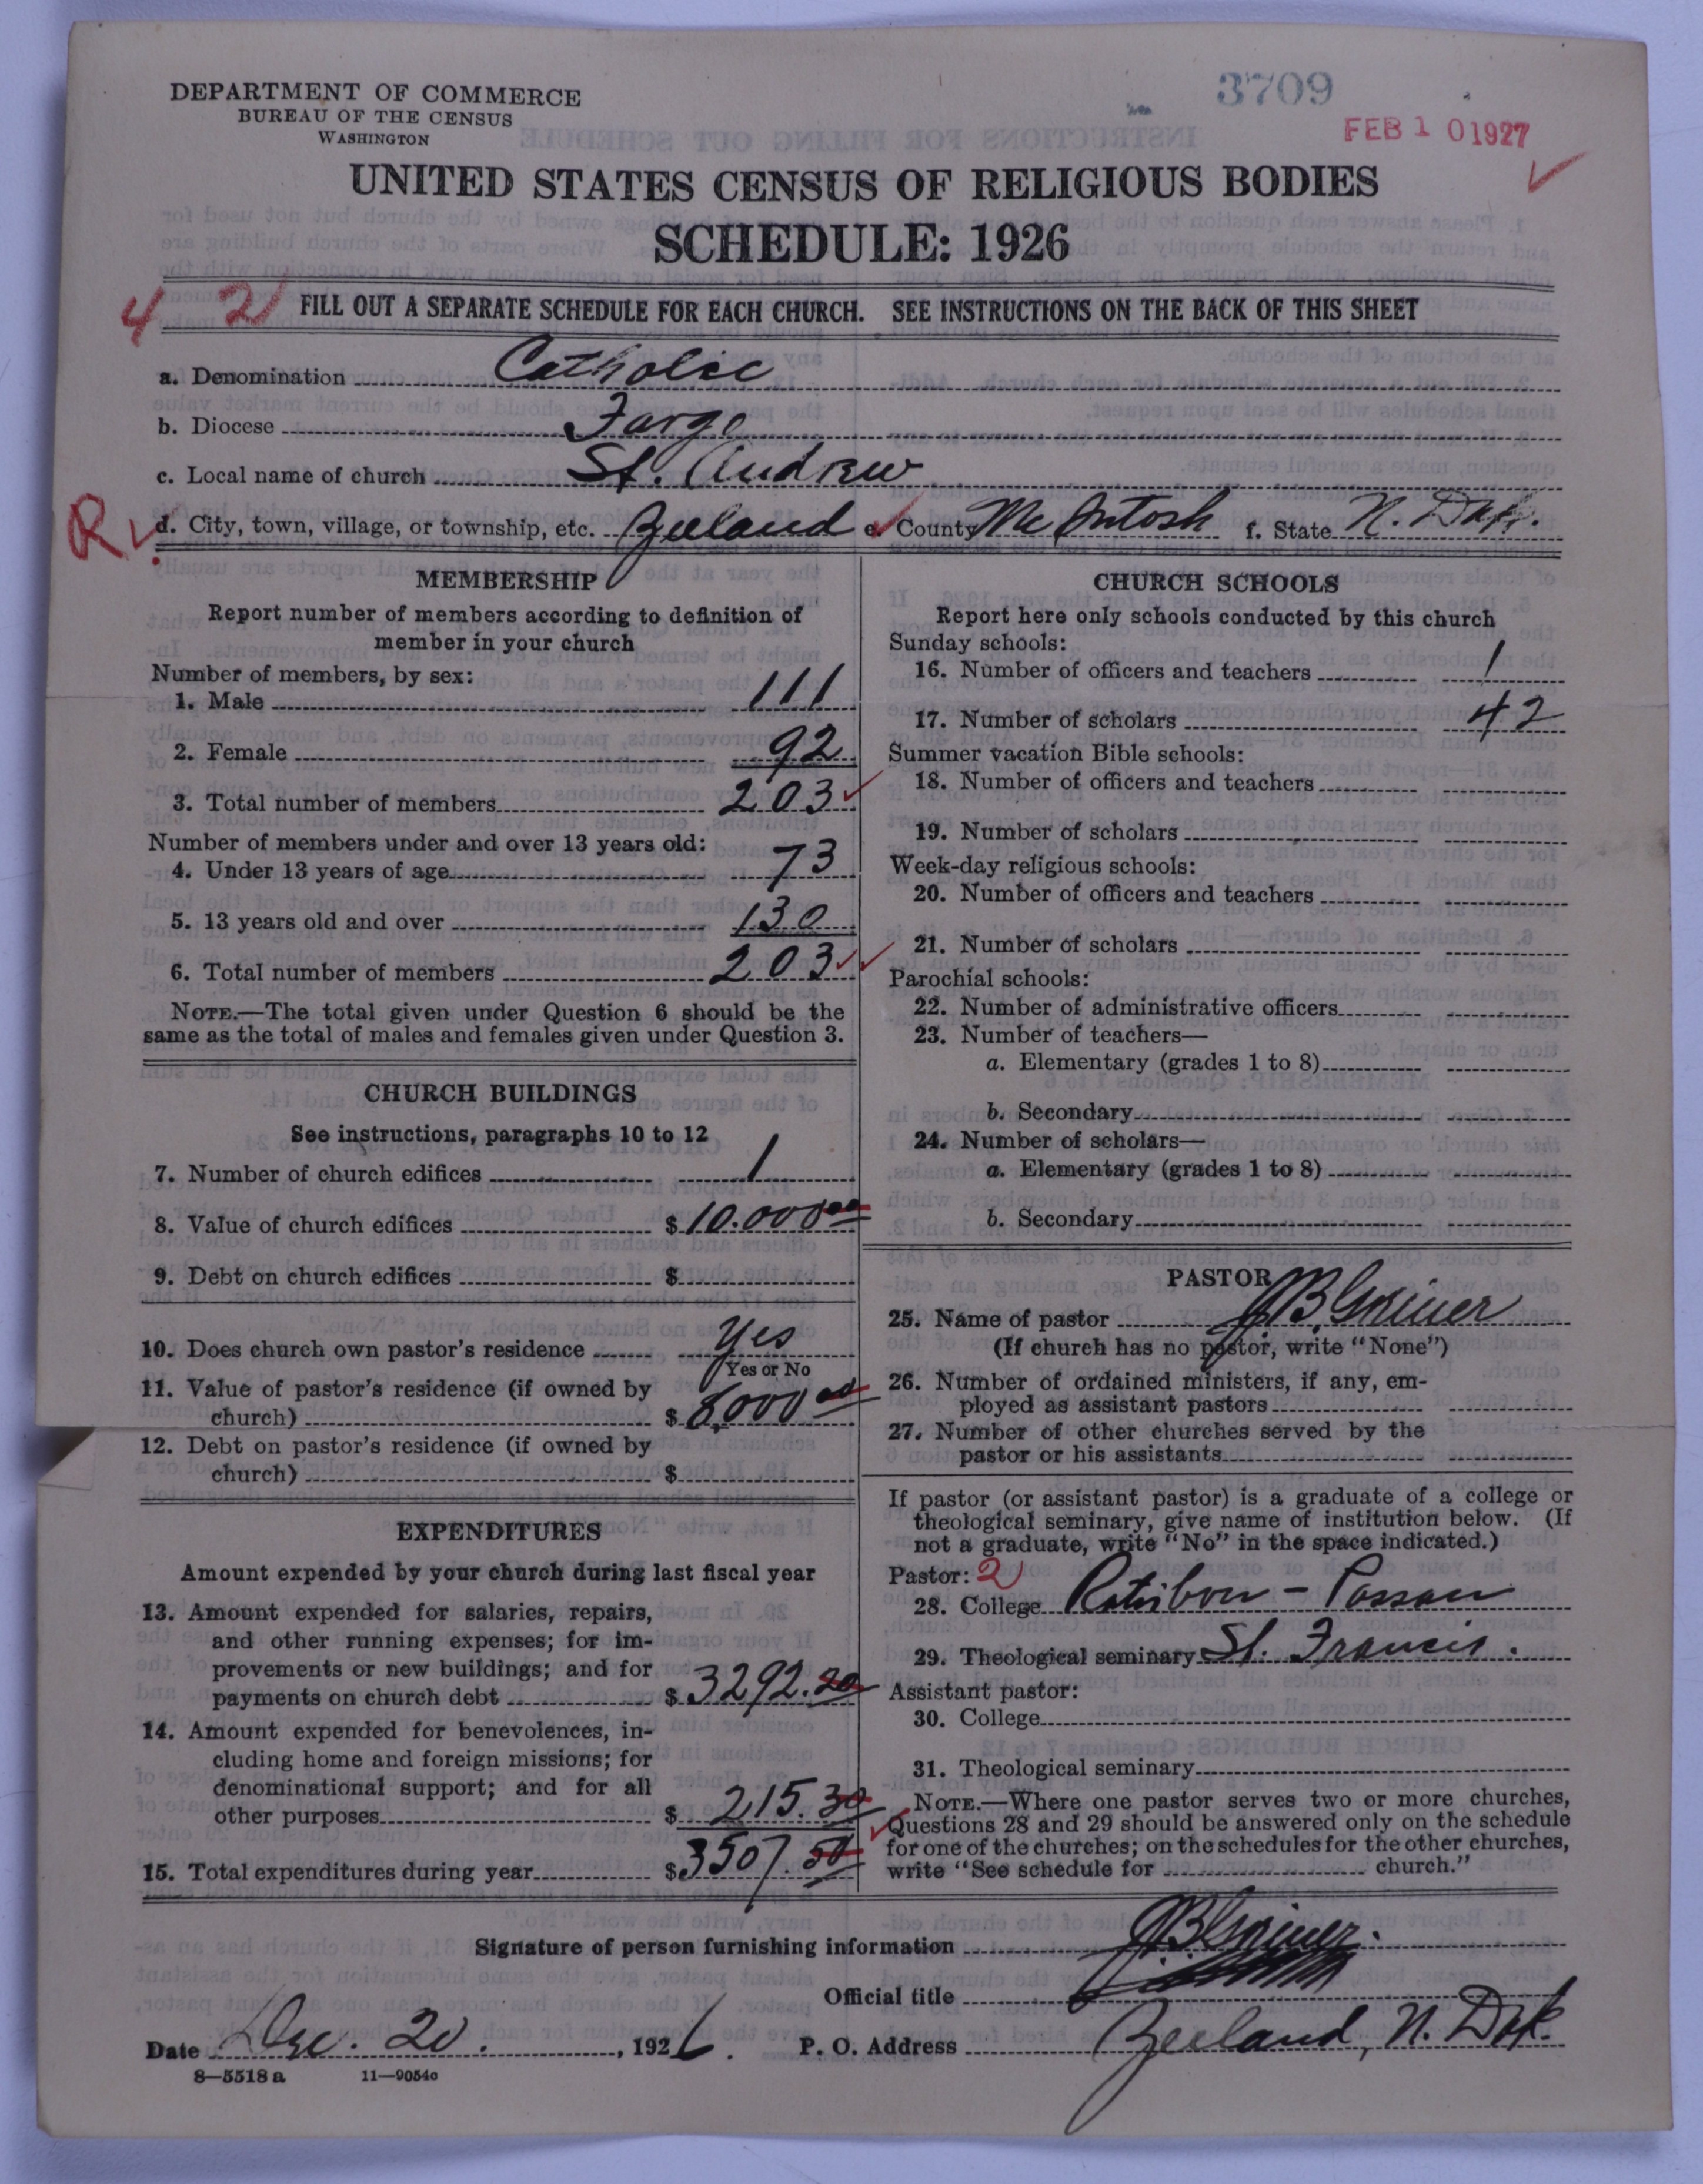 DEPARTMENT OF COMMERCE
BUREAU OF THE CENSUS
WASHINGTON
3709
FEB 10 1927
UNITED STATES CENSUS OF RELIGIOUS BODIES
SCHEDULE: 1926
4 2 FILL OUT A SEPARATE SCHEDULE FOR EACH CHURCH. SEE INSTRUCTIONS ON THE BACK OF THIS SHEET
a. Denomination Catholic
b. Diocese Fargo
c. Local name of church St. Andrew
R d. City, town, village, or township, etc. Zeeland e. County McIntosh f. State N. Dak.
MEMBERSHIP
Report number of members according to definition of
member in your church
Number of members, by sex:
1. Male 111
2. Female 92
3. Total number of members 203
Number of members under and over 13 years old:
4. Under 13 years of age 73
5. 13 years old and over 130
6. Total number of members 203
NOTE.—The total given under Question 6 should be the
same as the total of males and females given under Question 3.
CHURCH BUILDINGS
See instructions, paragraphs 10 to 12
7. Number of church edifices 1
8. Value of church edifices $10.000 00
9. Debt on church edifices $
10. Does church own pastor's residence Yes
Yes or No
11. Value of pastor's residence (if owned by
church) $ 8,000 00
12. Debt on pastor's residence (if owned by
church) $
EXPENDITURES
Amount expended by your church during last fiscal year
13. Amount expended for salaries, repairs,
and other running expenses; for im-
provements or new buildings; and for
payments on church debt $ 3292.20
14. Amount expended for benevolences, in-
cluding home and foreign missions; for
denominational support; and for all
other purposes $ 215.30
15. Total expenditures during year $3507.50
CHURCH SCHOOLS
Report here only schools conducted by this church
Sunday schools:
16. Number of officers and teachers 1
17. Number of scholars 42
Summer vacation Bible schools:
18. Number of officers and teachers
19. Number of scholars
Week-day religious schools:
20. Number of officers and teachers
21. Number of scholars
Parochial schools:
22. Number of administrative officers
23. Number of teachers—
a. Elementary (grades 1 to 8)
b. Secondary
24. Number of scholars—
a. Elementary (grades 1 to 8)
b. Secondary
PASTOR
25. Name of pastor J.B. Greiner
(If church has no pastor, write "None")
26. Number of ordained ministers, if any, em-
ployed as assistant pastors
27. Number of other churches served by the
pastor or his assistants
If pastor (or assistant pastor) is a graduate of a college or
theological seminary, give name of institution below. (If
not a graduate, write "No" in the space indicated.)
Pastor: 2
28. College Ratisbon - Passau
29. Theological seminary St. Francis.
Assistant pastor:
30. College
31. Theological seminary
NOTE.—Where one pastor serves two or more churches,
Questions 28 and 29 should be answered only on the schedule
for one of the churches; on the schedules for the other churches,
write "See schedule for church."
Signature of person furnishing information JB Greiner.
Official title
Date Dec. 20. , 1926. P. O. Address Zeeland, N. Dak.
8—5518 a 11—9054c